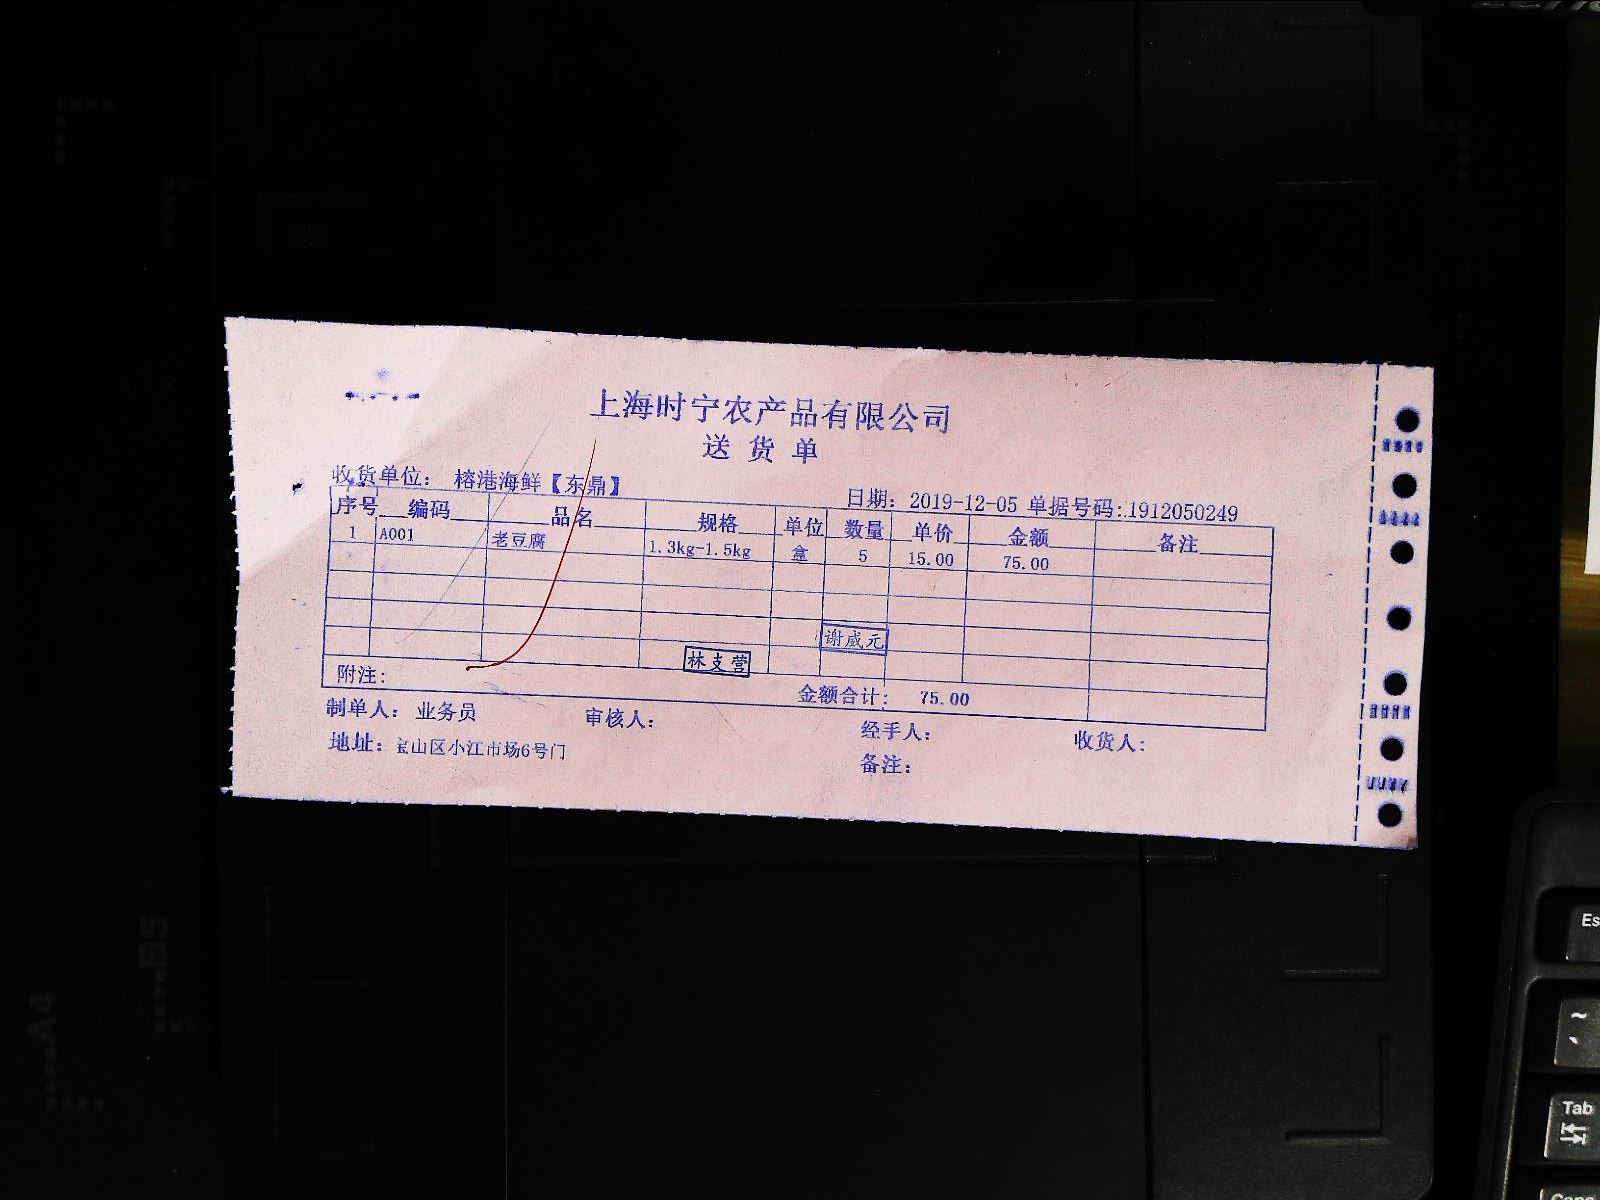 上海时宁农产品有限公司
送 货 单
收货单位: 榕港海鲜【东鼎】 日期: 2019-12-05 单据号码: 1912050249
序号 编码 品名 规格 单位 数量 单价 金额 备注
1 A001 老豆腐 1.3kg-1.5kg 盒 5 15.00 75.00
谢威元
林支营
附注: 金额合计: 75.00
制单人: 业务员 审核人: 经手人: 收货人:
地址: 宝山区小江市场6号门 备注:
A4
B5
Es
~
Tab
Caps